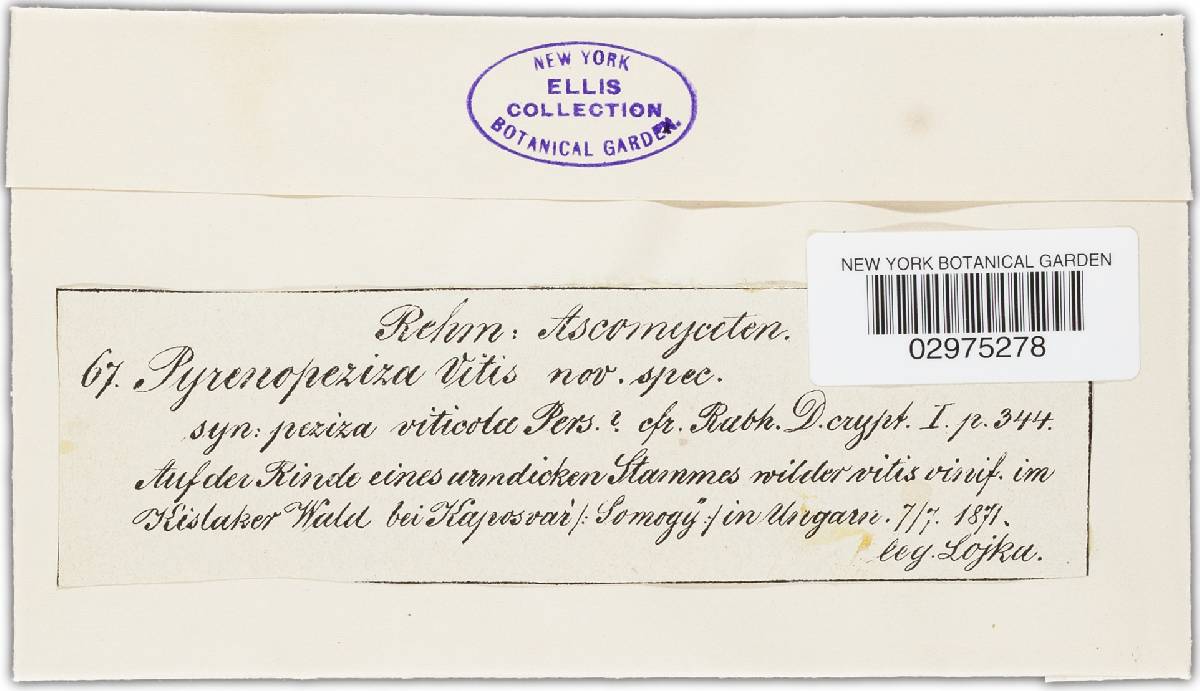 NEW YORK
ELLIS
COLLECTION
BOTANICAL GARDEN.
NEW YORK BOTANICAL GARDEN
02975278
Rehm: Ascomyceten.
67. Pyrenopeziza Vitis nov. spec.
syn: peziza viticola Pers.? cfr. Rabh. D. crypt. I. p. 344.
Auf der Rinde eines armdicken Stammes wilder vitis vinif. im
Kislaker Wald bei Kaposvár /: Somogÿ :/ in Ungarn. 7/7. 1871.
leg. Lojka.